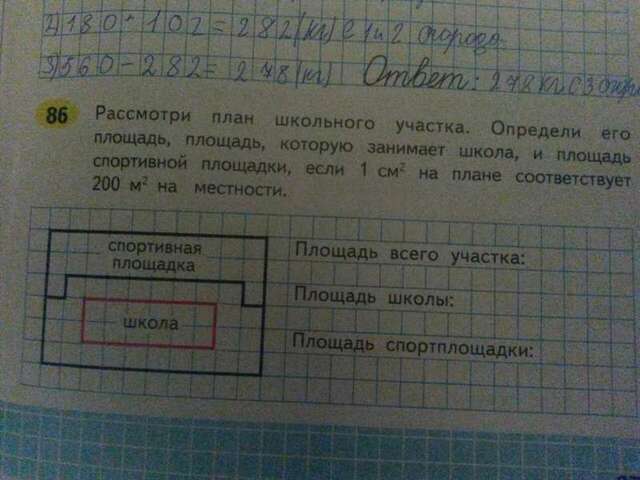 2) 180 + 102 = 282 (кг) с 1 и 2
3) 560 - 282 = 278 (кг) Ответ: 278 кг с 3
86 Рассмотри план школьного участка. Определи его
площадь, площадь, которую занимает школа, и площадь
спортивной площадки, если 1 см² на плане соответствует
200 м² на местности.
спортивная
площадка
школа
Площадь всего участка:
Площадь школы:
Площадь спортплощадки: